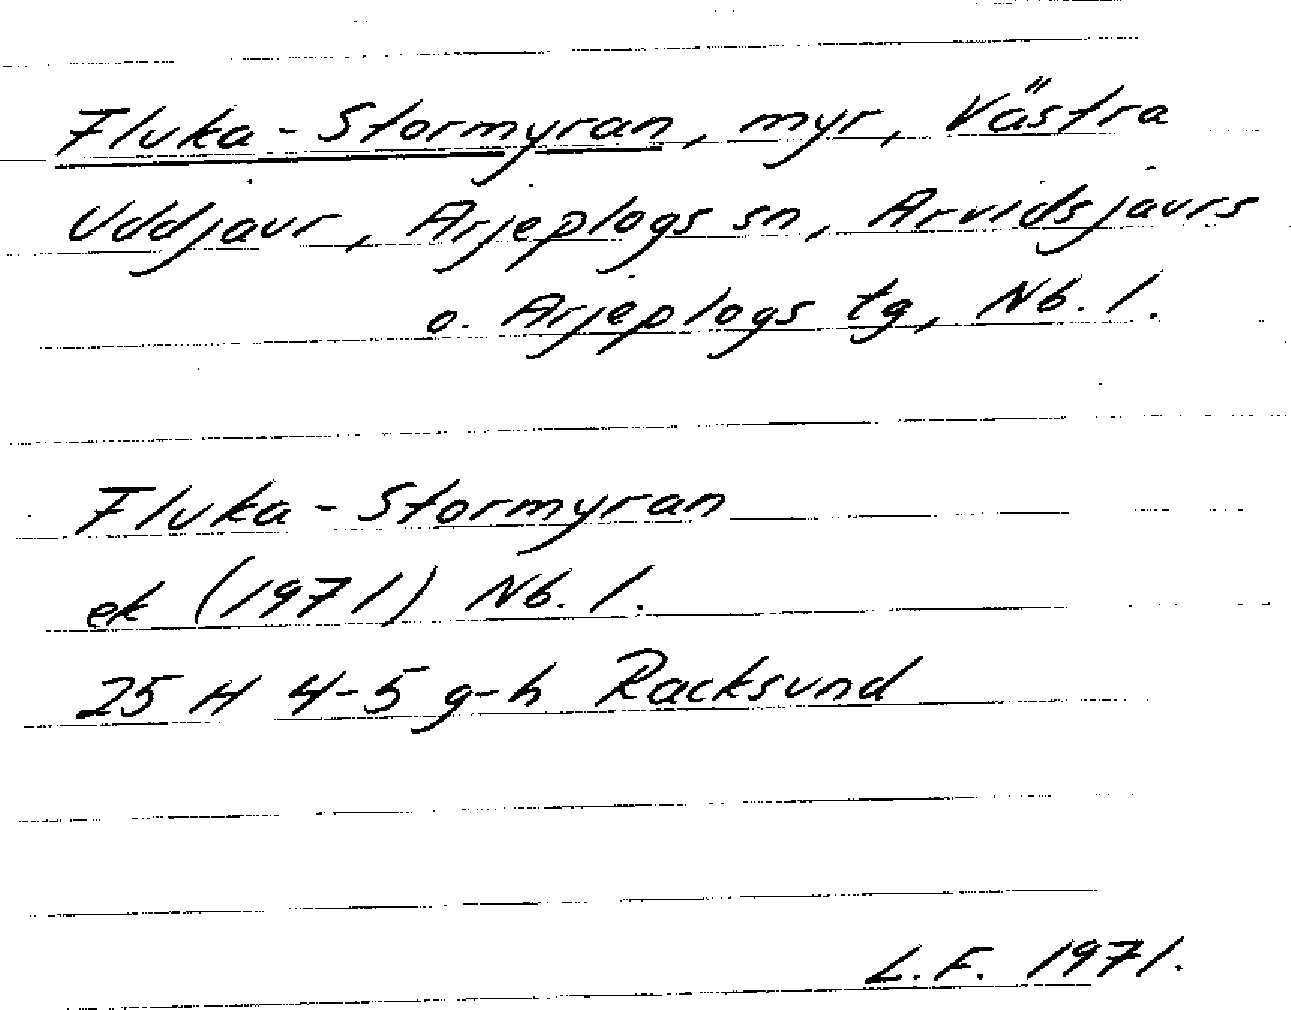 Fluka-Stormyran, myr, Västra
Uddjaur, Arjeplogs sn, Arvidsjaurs
o. Arjeplogs tg, Nb. l.
Fluka-Stormyran
ek (1971) Nb. l.
25 H 4-5 g-h Racksund
L.F. 1971.